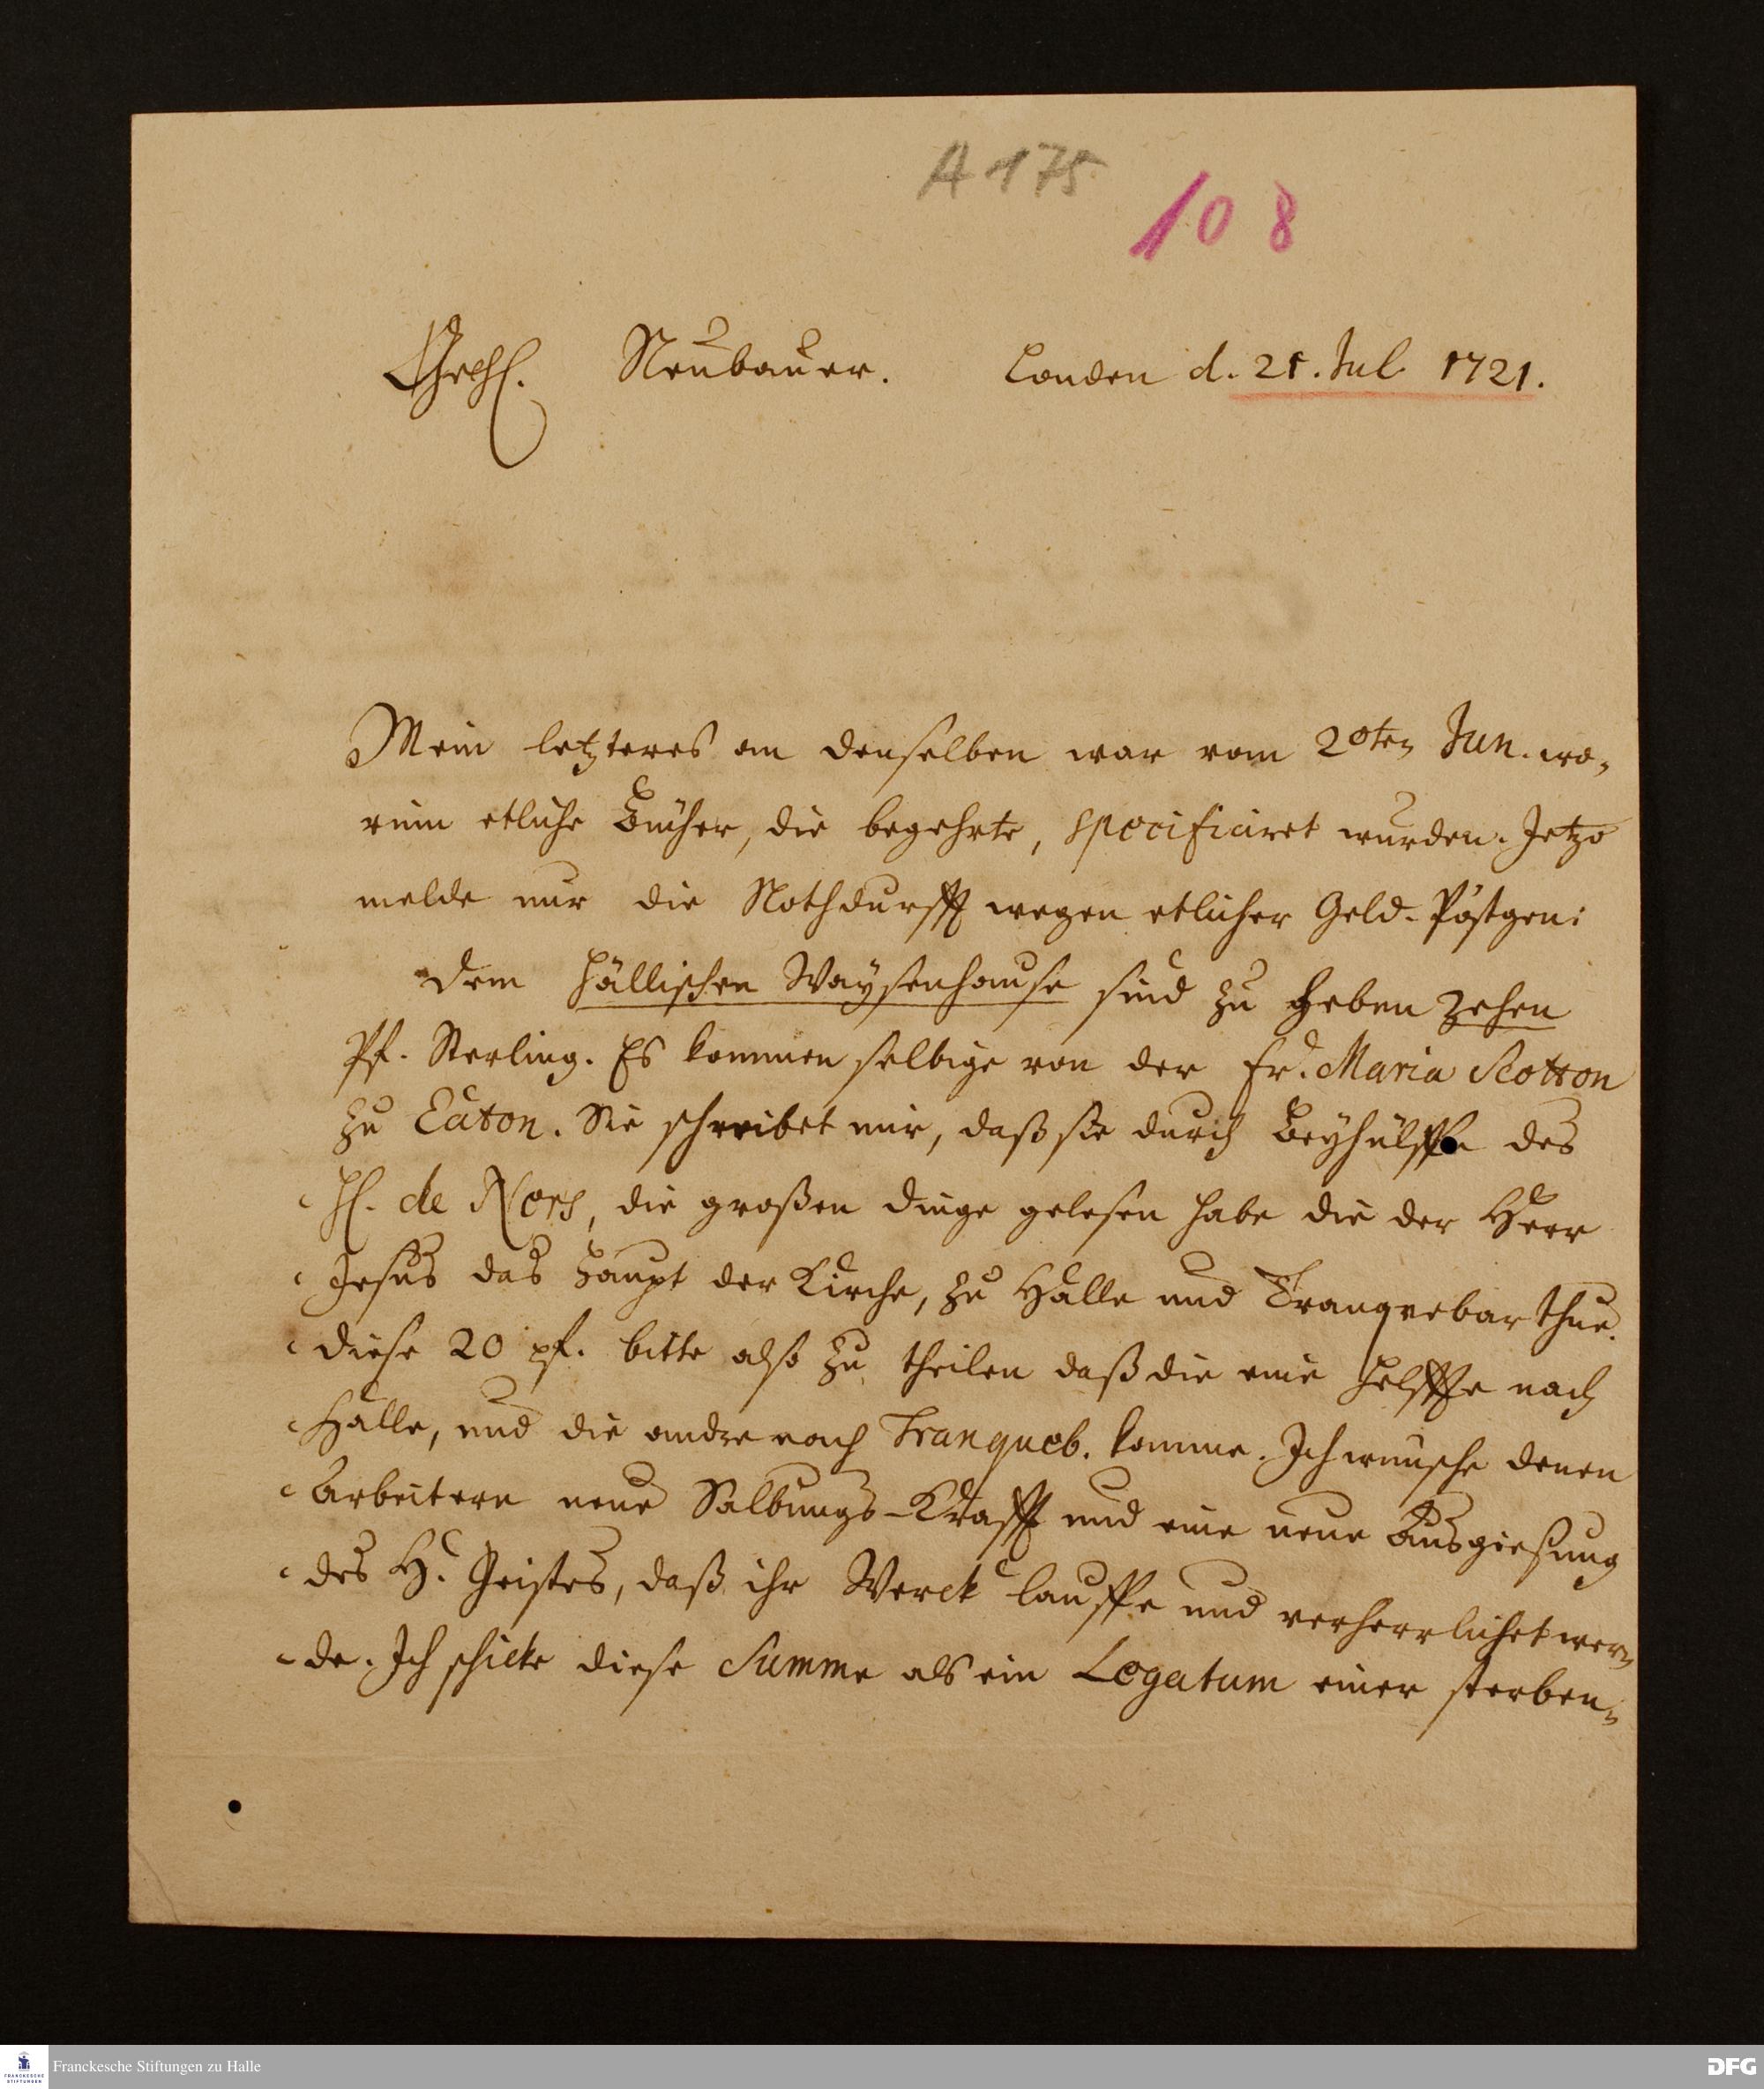 A 175
108
Neubauer. Londen d. 21. Jul 1721.
Mein letzteres an denselben war vom 20ten Jun. wo-
rinn etliche Bücher, die begehrte, specificiret wurden. Jetzo
melde nur die Nothdurfft wegen etlicher Geld-Pöstgen:
Dem Hällischen Waysenhause sind zu heben zehen
Pf. Sterling. Es kommen selbige von der Fr. Maria Scotton
zu Eaton. Sie schreibet mir, daß sie durch Beyhülffe des
H. de , die großen Dinge gelesen habe die der Herr
Jesus das Haupt der Kirche, zu Halle und Tranqvebar thue.
Diese 20 pf. bitte also zu theilen daß die eine Helffte nach
Halle, und die andre nach Tranqueb. komme. Ich wünsche denen
Arbeitern neue Salbungs-Krafft und eine neue Ausgießung
des H. Geistes, daß ihr Werck lauffe und verherrlichet wer-
de. Ich schicke diese Summe als ein Legatum einer sterben-
Franckesche Stiftungen zu Halle
FRANCKESCHE
STIFTUNGEN
DFG